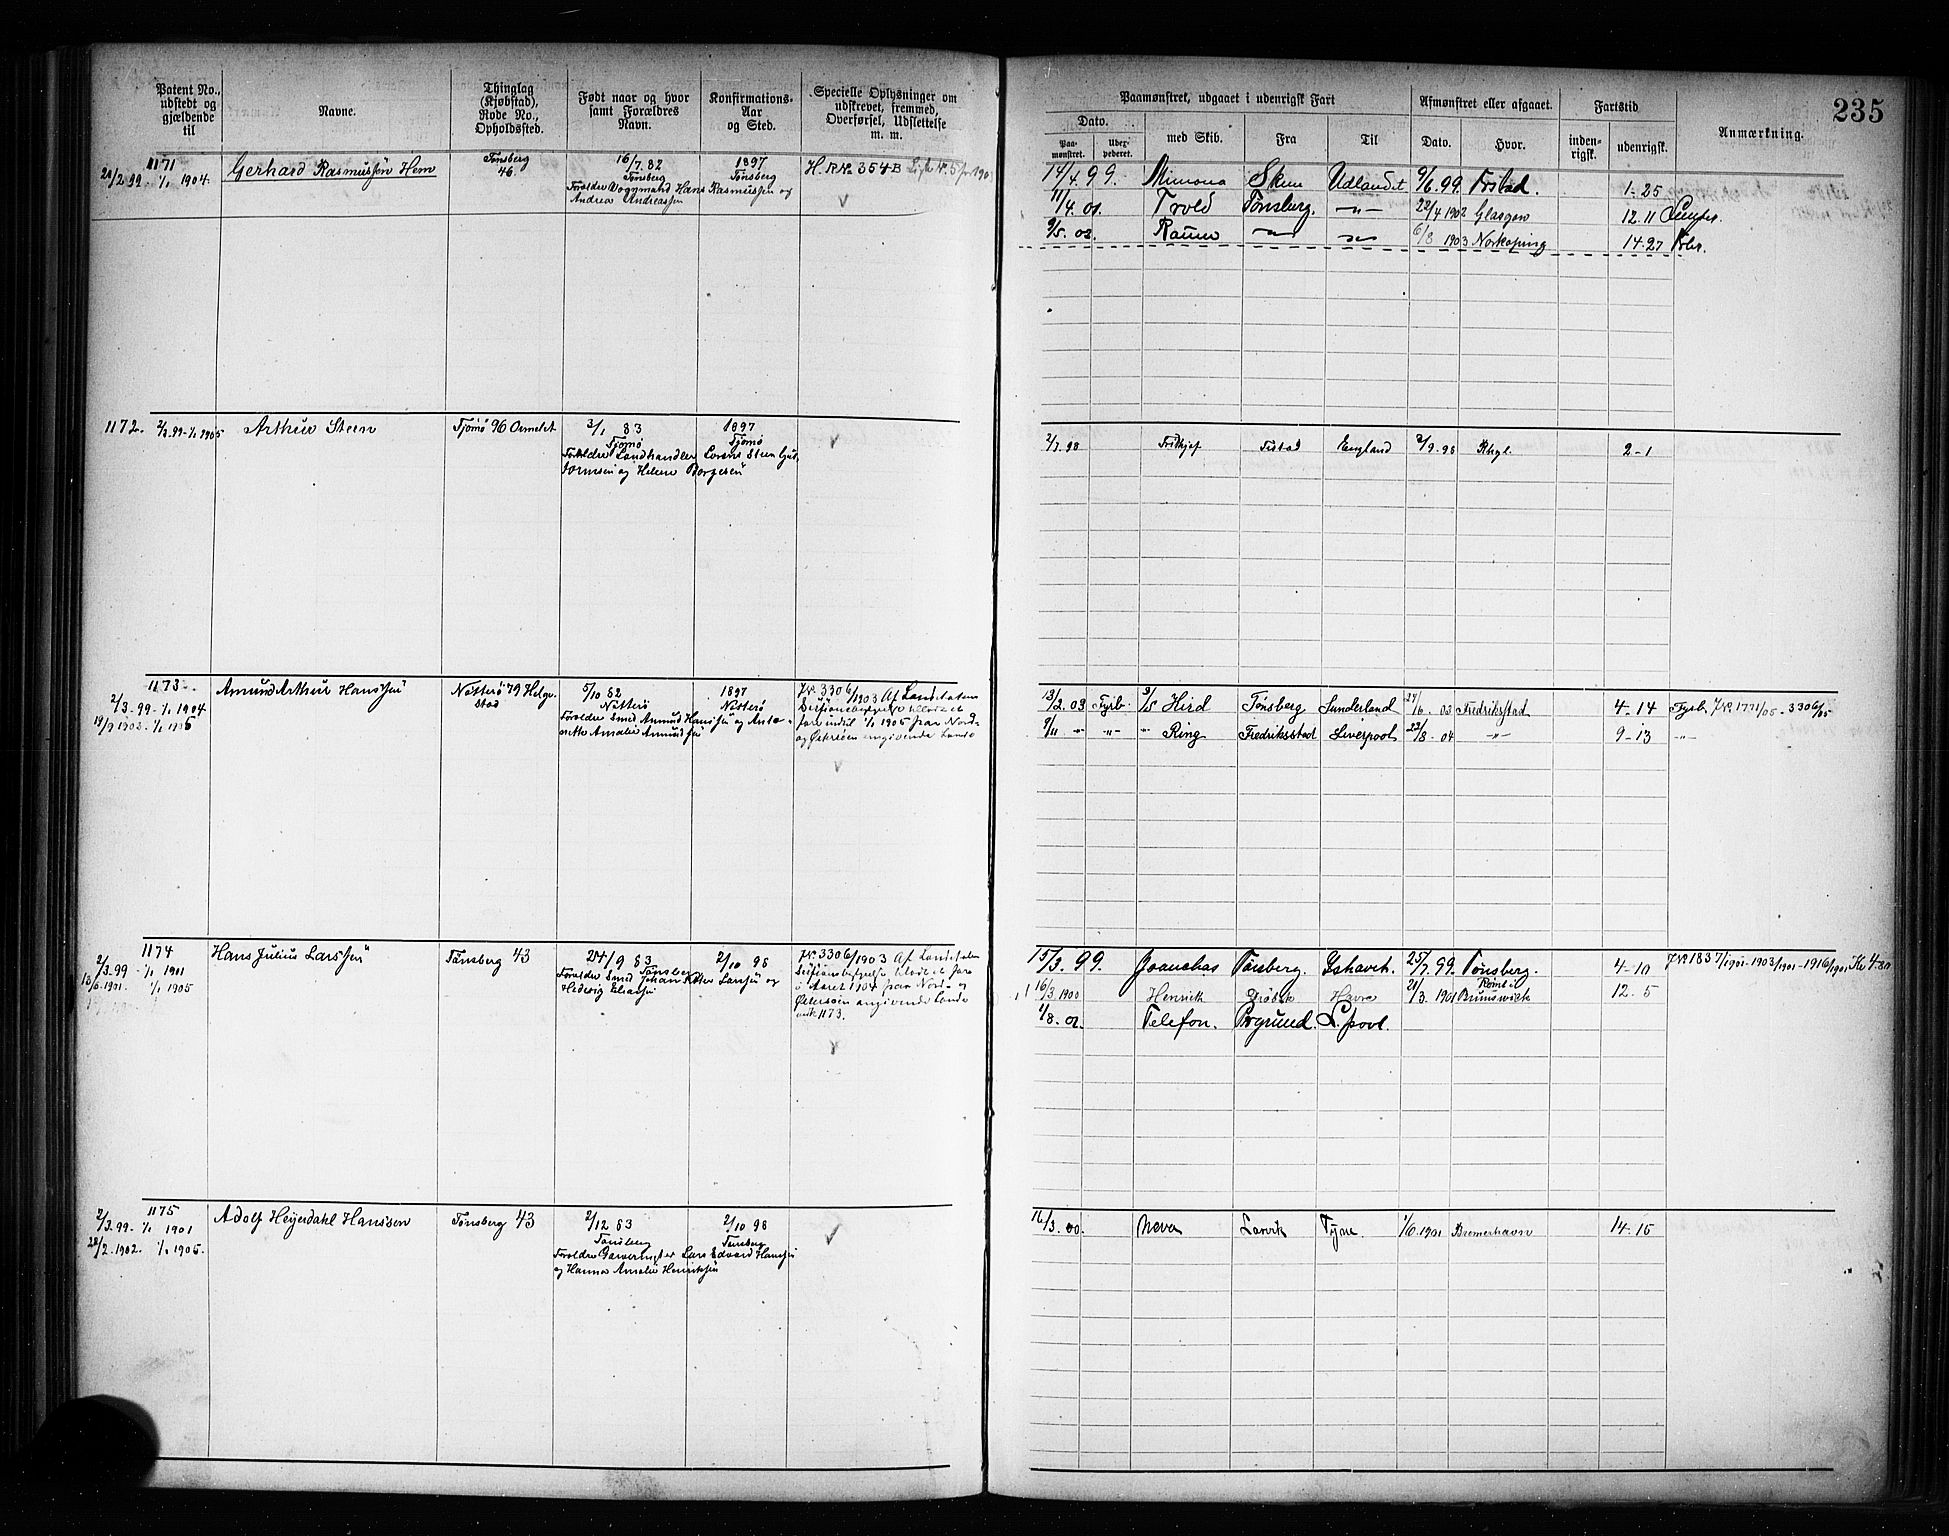 235
Patent No., udstedt og gjældende til
Navne.
Thinglag (Kjøbstad), Rode No., Opholdssted.
Født naar og hvor samt Forældres Navn.
Konfirmations-Aar og Sted.
Specielle Oplysninger om udskrevet, fremmed, Overførsel, Udslettelse m. m.
Paamønstret, udgaaet i udenrigsk Fart
Afmønstret eller afgaaet.
Fartstid
Anmærkning.
Dato.
med Skib.
Fra
Til
Dato.
Hvor.
inden-rigsk.
udenrigsk.
Paa-mønstret.
Udex-pederet.
1171
20/2 99 - 1/1 1904.
Gerhard Rasmussen Hem
Tønsberg 46.
16/7. 82
Tønsberg
Forældre Vognmand Hans Rasmussen og
Andrea Andreassen
1897
Tønsberg
H. R. No. 354 B
14/4. 99. Mimona Skien Udlandet 9/6. 99. Frstad. 1-25
11/4. 01. Trold Tønsberg. -"- 22/4 1902 Glasgow 12. 11
9/5. 02. -"- -"- 6/8 1903 Norkøping 14-27
1172. 2/3. 99 - 1/1 1905
Arthur Steen
Tjømø 96 Ormelet
3/1 83
Tjømø
Forældre Landhandler Lorens Steen
og Helene Borgesen
1897
Tjømø
2/7. 98 Fridtjof Frstad England 2/9. 98 Rhyl. 2-1
1173
2/3. 99 - 1/1 1904
19/9 1903 - 1/1 1905
Amund Arthur Hanssen
Nøtterø 79 Helgerstad
5/10 82
Nøtterø
Forældre Smed Amund Hanssen og Antonette Amalie Amundsen
1897
Nøtterø
J. No. 3306/1903 Af Landetaten
tilladt at
fare indtil 1/1 1905 paa Nord-
og Østersøen omgivende Lande
13/2. 03 Fyrb. 9/5 Hird Tønsberg Sunderland 27/6. 03 Fredriksstad 4-14 Fyrb. J. No. 1771/05 - 3306/05
9/11 -"- -"- -"- Ring Fredriksstad Liverpool 23/8 - 04 -"- 9-13 -"-
1174
2/3. 99 - 1/1 1901
13/6. 1901. 1/1 1905
Hans Julius Larssen
Tønsberg 43
24/9 83
Tønsberg
Forældre Smed Johan Peter Larsen og
Hedevig Eliassen
2/10 98
J. No. 3306/1903 Af Landetaten
tilladt at fare
i Aaret 1904 paa Nord- og
Østersøen omgivende Lande
mrk 1173.
15/3. 99. Joanchas Tønsberg. Gshavn. 25/7. 99. Tønsberg. 4-10 J. No. 1837/1901 - 1903/1901 - 1916/1901 Kr 4.80
16/3. 1900 Henrik Drøbak Havre 21/3. 1901 Brunswick 12. 5
1/8. 01. Telefon. Prgrund. L.pool.
1175
2/3. 99 - 1/1 1901
28/2. 1902. 1/1 1905.
Adolf Heyerdahl Hanssen
Tønsberg 43
2/12 83
Tønsberg
Forældre Garvermester Lars Edvard Hanssen
og Hanna Amalie Henriksen
2/10 98
Tønsberg
16/3. 00. Neva Larvik Tyne. 1/6. 1901 Bremerhavn 14-15